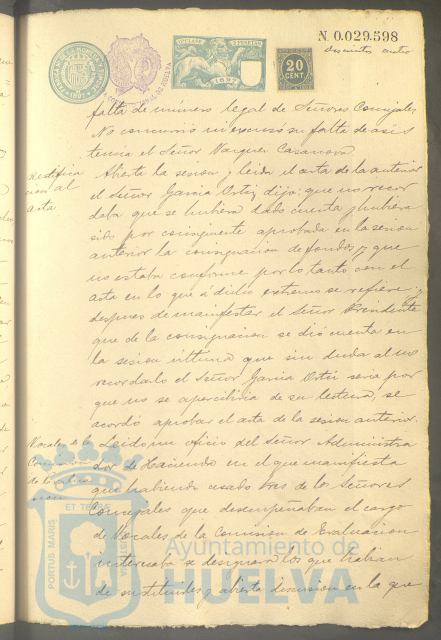 N. 0.029.598
doscientos cuatro
20
CENT.
1897
falta de número legal de Señores Concejales
No concurrió ni excusó su falta de asis
tencia el Señor Vazquez Casanova
Rectifica
cion al
acta
Abierta la sesion y leida el acta de la anterior
el Señor Garcia Ortiz dijo: que no recor
daba que se hubiera dado cuenta y hubiera
sido por consiguiente aprobada en la sesion
anterior la consignacion de fondos y que
no estaba conforme por lo tanto con el
acta en lo que á dicho extremo se refiere; y
despues de manifestar el Señor Presidente
que de la consignacion se dió cuenta en
la sesion ultima que sin duda al no
recordarlo el Señor Garcia Ortiz seria por
que no se apercibiria de su lectura, se
acordó aprobar el acta de la sesion anterior.
Vocales de la
Comision
de
Leido un oficio del Señor Administra
dor de Hacienda en el que manifiesta
que habiendo cesado tres de los Señores
Concejales que desempeñaban el cargo
de Vocales de la Comision de Evaluacion
interesaba se designaran los que habian
de sustituirles y abierta discusion en la que
PORTUS MARIS
ET TERRAE
Ayuntamiento de
HUELVA